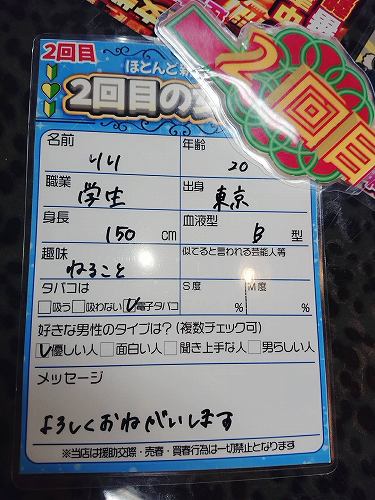 2回目
ほとんど
2回目の
2回目
名前 りり 年齢 20
職業 学生 出身 東京
身長 150 cm 血液型 B 型
趣味 ねること 似てると言われる芸能人等
タバコは S度 % M度 %
吸う 吸わない 電子タバコ
好きな男性のタイプは?(複数チェック可)
優しい人 面白い人 聞き上手な人 男らしい人
メッセージ
よろしくおねがいします
※当店は援助交際・売春・買春行為は一切禁止となります